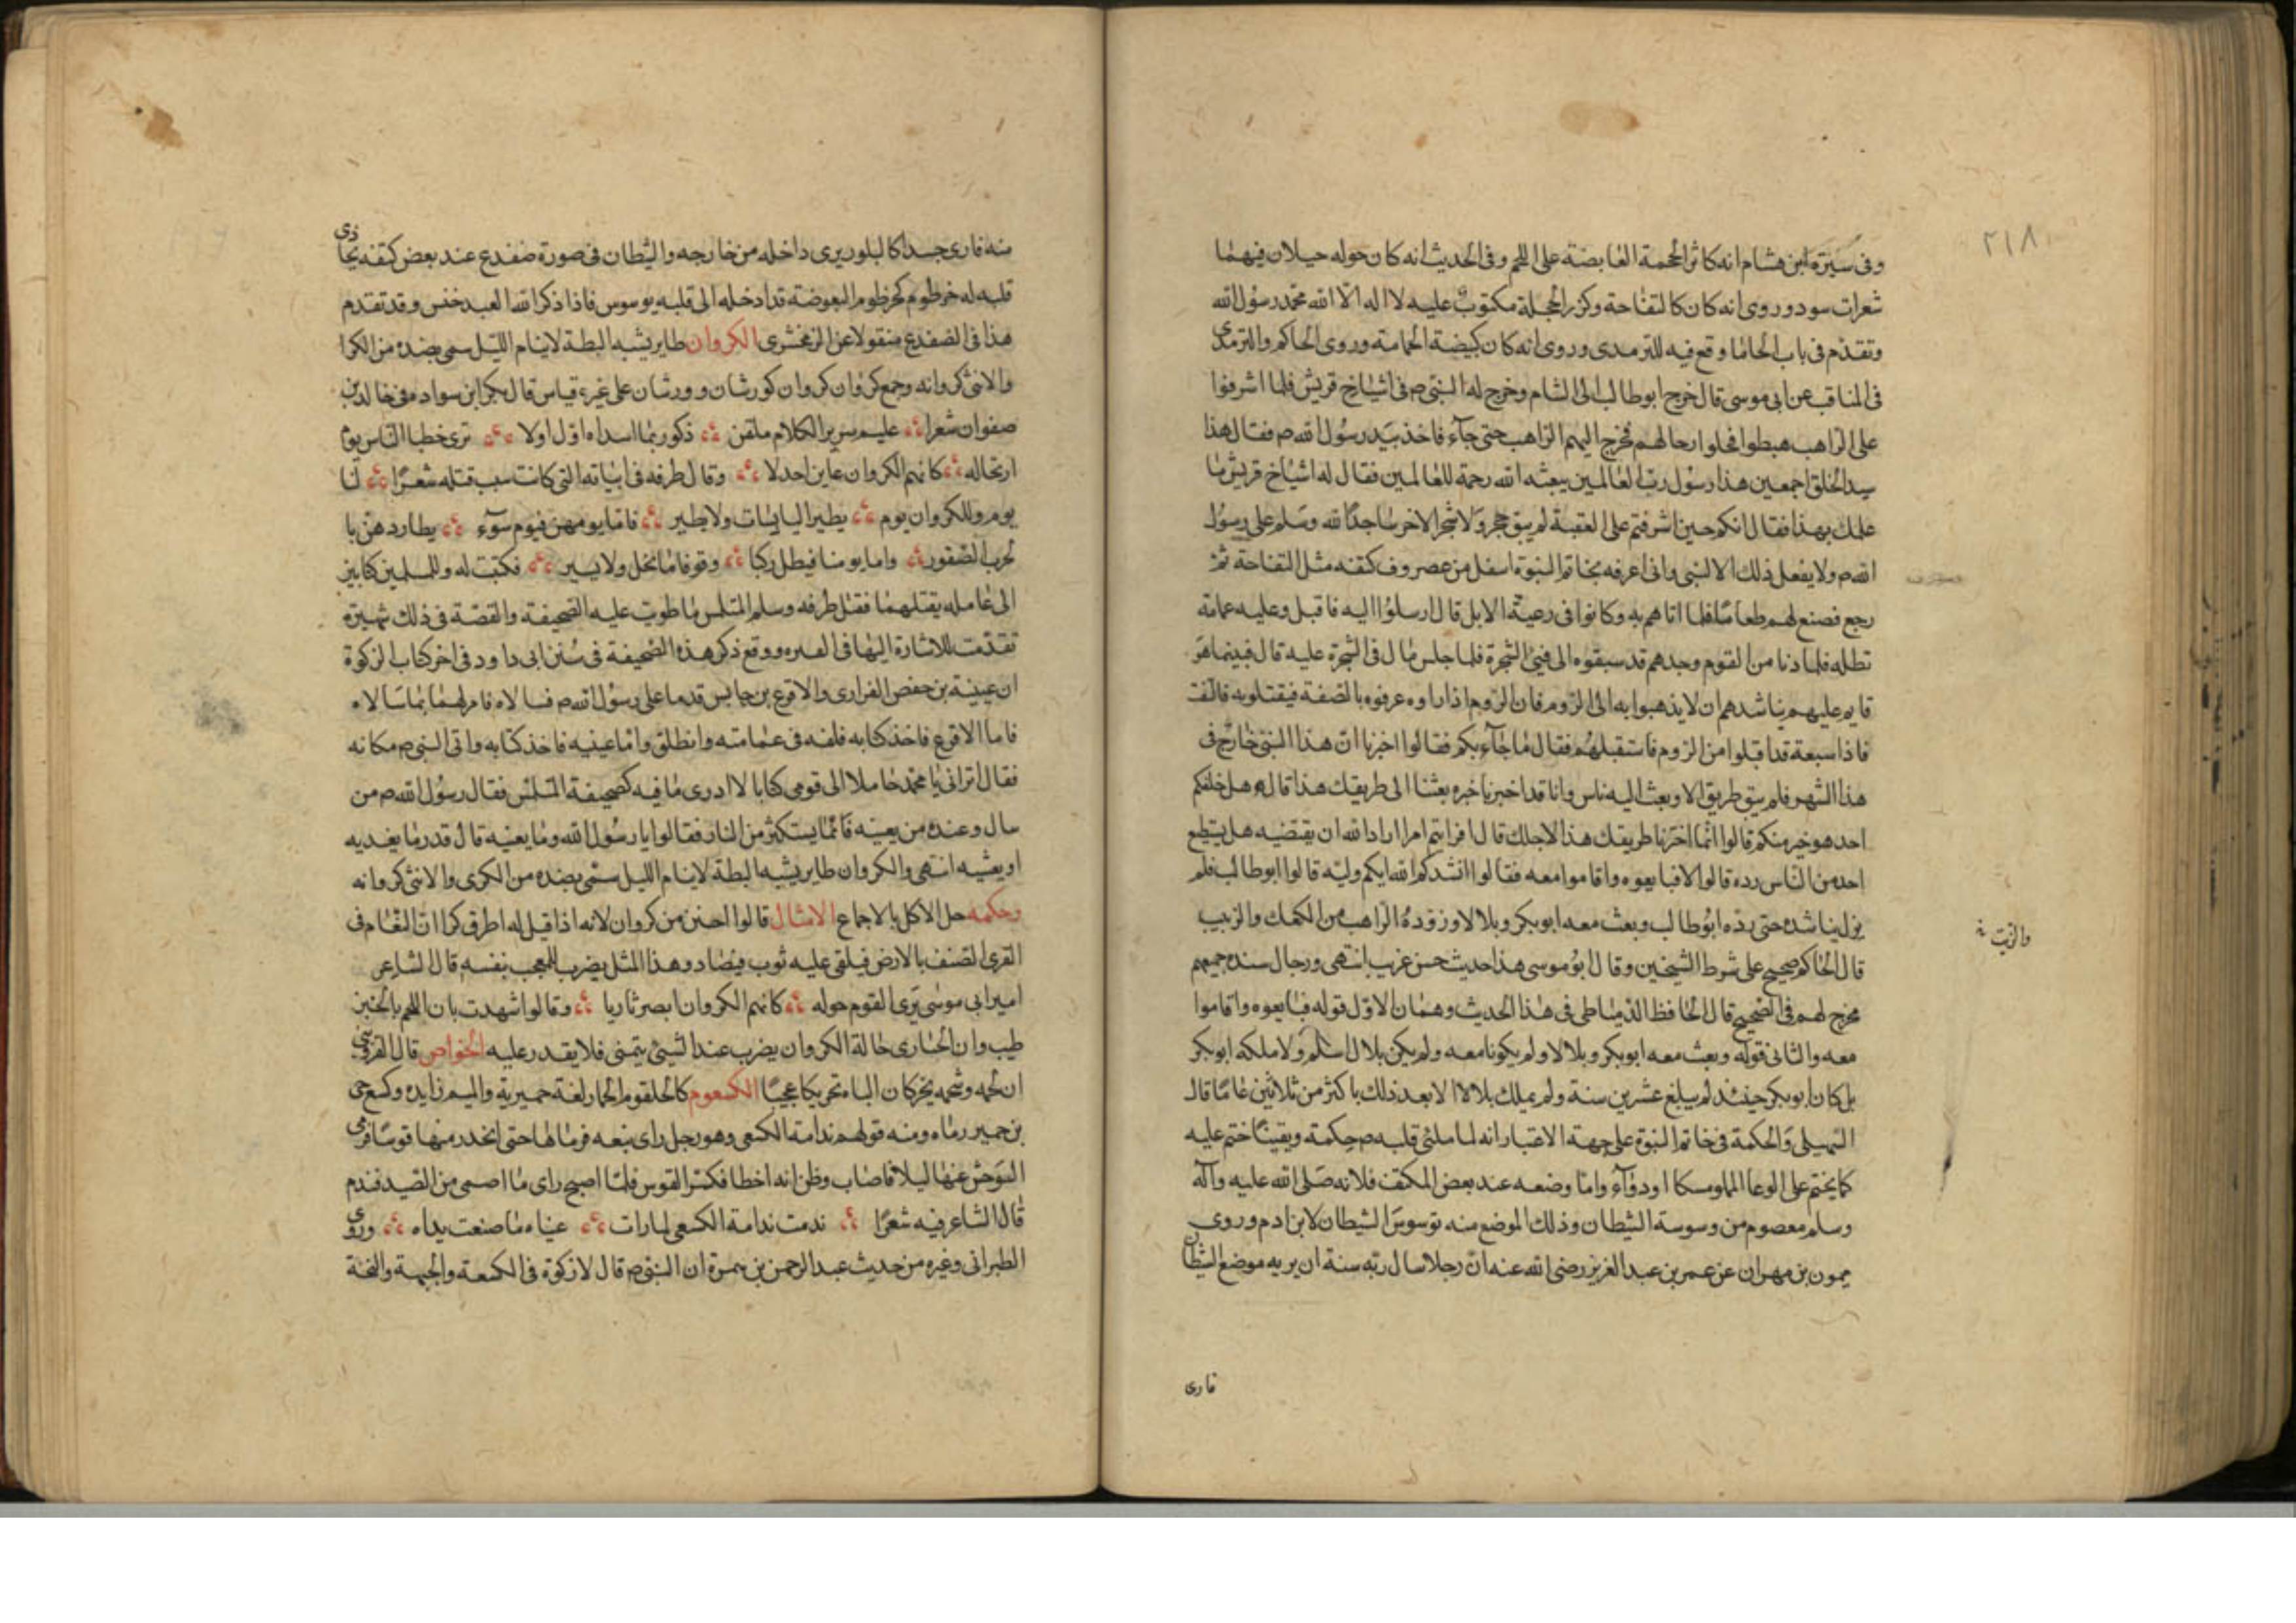 ٢١٨
وفى سيرة ابن هشام انه كاثر المحجمة القابضة على اللحم وفى الحديث انه كان حوله خيلان فيهما
شعرات سود وروى انه كان كالتفاحة وكزر الحجلة مكتوب عليه لا اله الا الله محمد رسول الله
وتقدم فى باب الحا ما وقع فيه للترمدى وروى انه كان كبيضة الحمامة وروى الحاكم والترمدى
فى المناقب عن ابى موسى قال خرج ابو طالب الى الشام وخرج له النبى ص فى اشياخ قريش فلما اشرفوا
على الراهب هبطوا فحلوا رحالهم فخرج اليهم الراهب حتى جآء فاخذ بيد رسول الله ص فقال هذا
سيد الخلق اجمعين هذا رسول رب العالمين يبعثه الله رحمة للعالمين فقال له اشياخ قريش ما
علمك بهذا فقال انكم حين اشرفتم على العقبة لم يبق حجر ولا شجر الا خر ساجدا لله وسلم على رسول
الله ص ولا يفعل ذلك الا لنبى وانى اعرفه بخاتم النبوة اسفل من غضروف كتفه مثل التفاحة ثم
رجع فصنع لهم طعاما فلما اتاهم به وكانوا فى رعية الابل قال ارسلوا اليه فاقبل وعليه غمامة
تظله فلما دنا من القوم وجدهم قد سبقوه الى فئ الشجرة فلما جلس مال فئ الشجرة عليه قال فبينما هو
قايم عليهم يناشدهم ان لا يذهبوا به الى الروم فان الروم اذا راوه عرفوه بالصفة فيقتلونه فالتفت
فاذا سبعة قد اقبلوا من الروم فاستقبلهم فقال ما جآء بكم فقالوا اخبرنا ان هذا النبى خارج فى
هذا الشهر فلم يبق طريق الا وبعث اليه ناس وانا قد اخبرنا خبره بعثنا الى طريقك هذا قال هل خلفكم
احد هو خير منكم قالوا انما اخترنا طريقك هذا لاجلك قال افرايتم امرا اراد الله ان يقضيه هل يستطيع
احد من الناس رده قالوا لا فبايعوه واقاموا معه فقالوا انشدكم الله ايكم وليه قالوا ابو طالب فلم
يزل يناشده حتى رده ابو طالب وبعث معه ابو بكر وبلالا وزوده الراهب من الكعك والزبيب
والزيت
قال الحاكم صحيح على شرط الشيخين وقال ابو موسى هذا حديث حسن غريب انتهى ورجال سنده جميعهم
مخرج لهم فى الصحيح قال الحافظ الدمياطى فى هذا الحديث وهمان الاول قوله فبايعوه واقاموا
معه والثانى قوله وبعث معه ابو بكر وبلالا ولم يكونا معه ولم يكن بلال اسلم ولا ملكه ابو بكر
بل كان ابو بكر حينئد لم يبلغ عشرين سنة ولم يملك بلالا الا بعد ذلك باكثر من ثلاثين عاما قال
السهيلى والحكمة فى خاتم النبوة على جهة الاعتبار انه لما ملئ قلبه ص حكمة ويقينا ختم عليه
كما يختم على الوعا المملو مسكا او درآء واما وضعه عند بعض المكتف فلانه صلى الله عليه وآله
وسلم معصوم من وسوسة الشيطان وذلك الموضع منه توسوس الشيطان لابن ادم وروى
ميمون بن مهران عن عمر بن عبد العزيز رضى الله عنه ان رجلا سال ربه سنة ان يريه موضع الشيطان
فارى
منه فارى جسدا كالبلور يرى داخله من خارجه والشيطان فى صورة ضفدع عند بعض كتفه يحاذى
قلبه له خرطوم كخرطوم البعوضة قد ادخله الى قلبه يوسوس فاذا ذكر الله العبد خنس وقد تقدم
هذا فى الضفدع منقولا عن الزمخشرى الكروان طاير يشبه البطة لا ينام الليل سمى بضده من الكرا
والانثى كروانه وجمع كروان كروان كورشان وورشان على غير قياس قال بكر ابن سواده فى خالد بن
صفوان شعرا عليم بسرير الكلام ملقن ذكور بما اسداه اول اولا ترى خطبا الناس يوم
ارتحاله كانهم الكروان عاين احدلا وقال طرفه فى ابياته التى كانت سبب قتله شعرا لنا
يوم وللكروان يوم يطير اليابسات ولا يطير فاما يومهن فيوم سوء يطاردهن با
لحرب الصقور واما يومنا فيطل ركبا وقوفا ما نحل ولا يسير فكتب له وللمتلمس كتابين
الى عامله يقتلهما فقتل طرفه وسلم المتلمس ما طويت عليه الصحيفة والقصة فى ذلك شهيرة
تقدمت للاشارة اليها فى القبره ووقع ذكر هذه الصحيفة فى سنن ابى داود فى اخر كتاب الزكوة
ان عيينة بن حفص الفزارى والاقرع بن حابس قدما على رسول الله ص فسالاه فامر لهما بما سالاه
فاما الاقرع فاخذ كتابه فلفه فى عمامته وانطلق واما عيينه فاخذ كتابه واتى النبى ص مكانه
فقال اترانى يا محمد حاملا الى قومى كتابا لا ادرى ما فيه كصحيفة المتلمس فقال رسول الله ص من
سال وعنده من يعينه فانما يستكثر من النار فقالوا يا رسول الله وما يعينه قال قدر ما يغديه
او يعشيه انتهى والكروان طاير يشبه البطة لا ينام الليل سمى بضده من الكرى والانثى كروانه
وحكمه حل الاكل بالاجماع الامثال قالوا احسن من كروان لانه اذا قيل له اطرق كرا ان النعام فى
القرى التصنف بالارض فيلقى عليه ثوب فيصاد وهذا المثل يضرب للمعجب بنفسه قال الشاعر
امير ابى موسى ترى القوم حوله كانهم الكروان ابصر ثاريا وقالوا شهدت بان اللحم بالخبز
طيب وان الحبارى خالة الكروان يضرب عند الشئ يتمنى فلا يقدر عليه الخواص قال القزوينى
ان لحمه وشحمه يحركان الباه تحريكا عجيبا الكسعوم كالحلقوم الحمار لغة حميرية والميم زايده وكسع حى
بن حمير رماه ومنه قولهم ندامة الكسعى وهو رجل راى نبعه فرماها حتى اتخذ منها قوسا فرمى
الوحش عنها ليلا فاصاب وظن انه اخطا فكسر القوس فلما اصبح راى ما اصمى من الصيد فندم
قال الشاعر فيه شعرا ندمت ندامة الكسعى لما رات عيناه ما صنعت يداه وروى
الطبرانى وغيره من حديث عبد الرحمن بن سمرة ان النبى ص قال لا زكوة فى الكسعة والجبهة والنخة